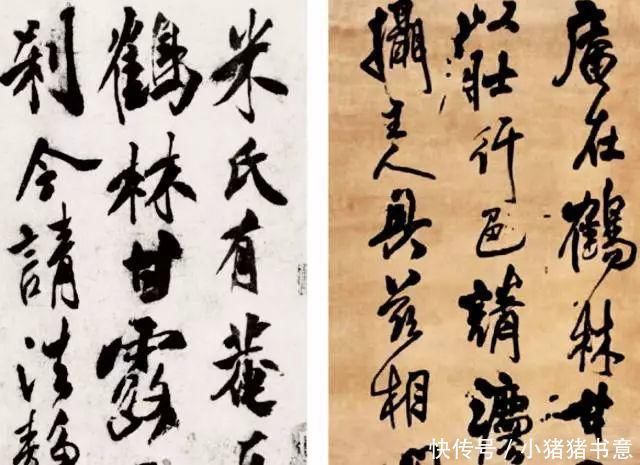 米氏有菴
鶴林甘露
刹今請法
庵在鶴林甘
以壯行色請
攝主人具茲相
快传号 / 小猪猪书意